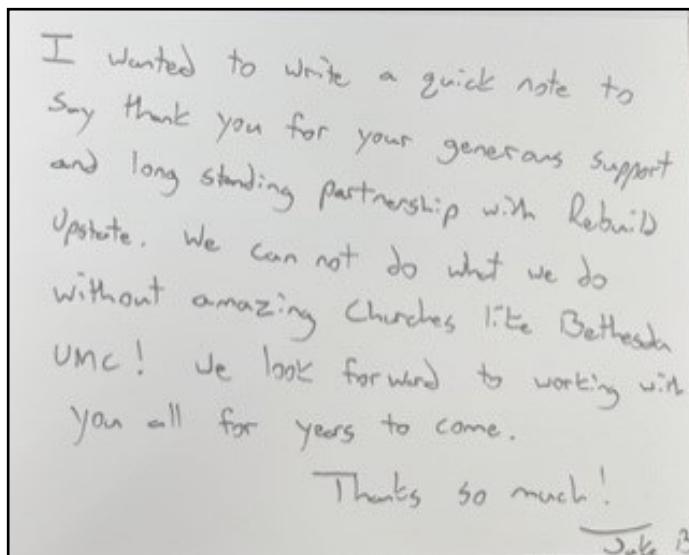 I wanted to write a quick note to
say thank you for your generous support
and long standing partnership with Rebuild
Upstate. We can not do what we do
without amazing Churches like Bethesda
UMC! We look forward to working with
you all for years to come.
Thanks so much!